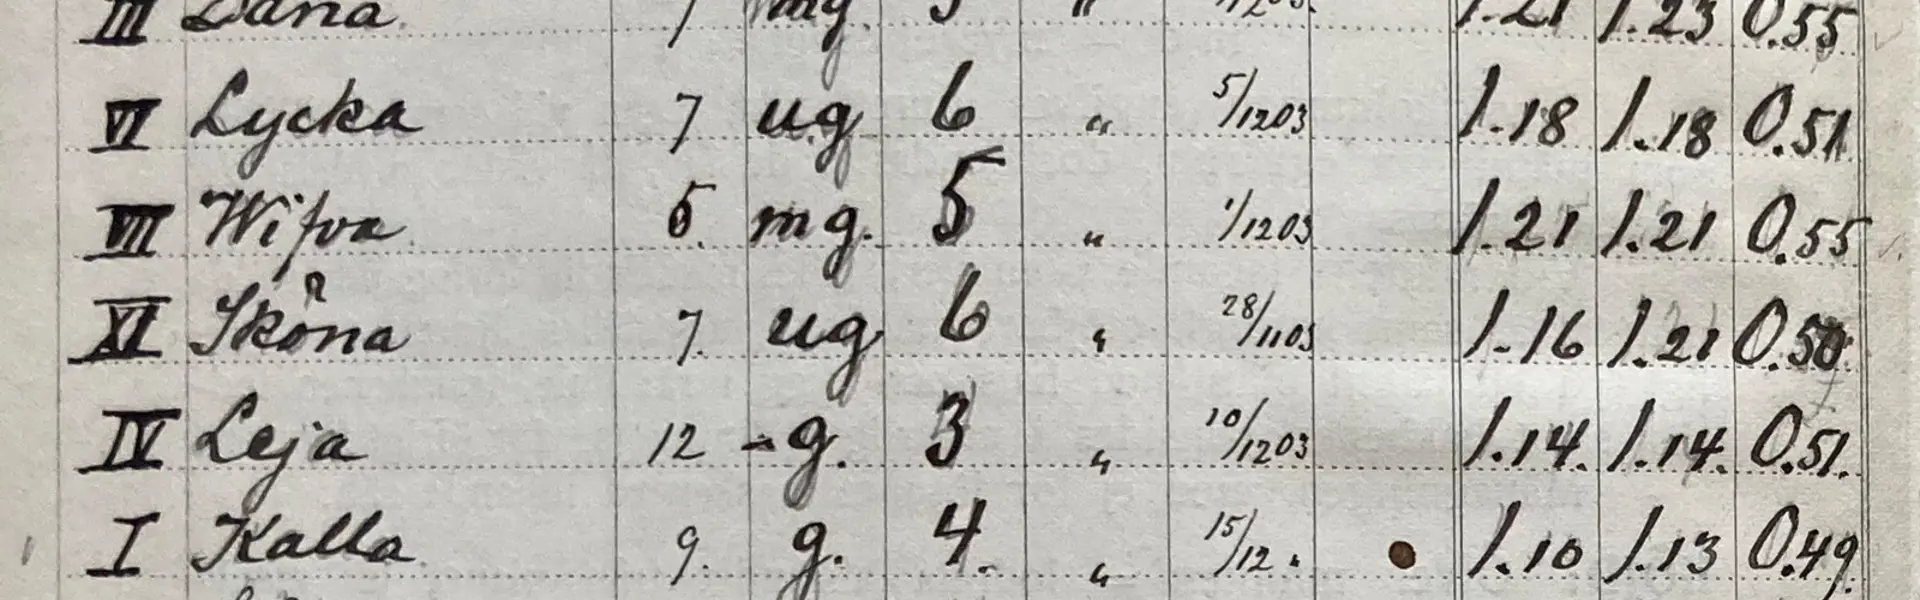 III Dana 7 mg. 5 " 1.21 1.23 0.55
VI Lycka 7 ug 6 " 5/12 03 1.18 1.18 0.51
VII Wifva 6. mg. 5 " 1/12 03 1.21 1.21 0.55
XI Sköna 7. ug 6 " 28/11 03 1.16 1.21 0.50
IV Leja 12 -g. 3 " 10/12 03 1.14. 1.14. 0.51.
I Kalla 9. g. 4. " 15/12 " 1.10 1.13 0.49.